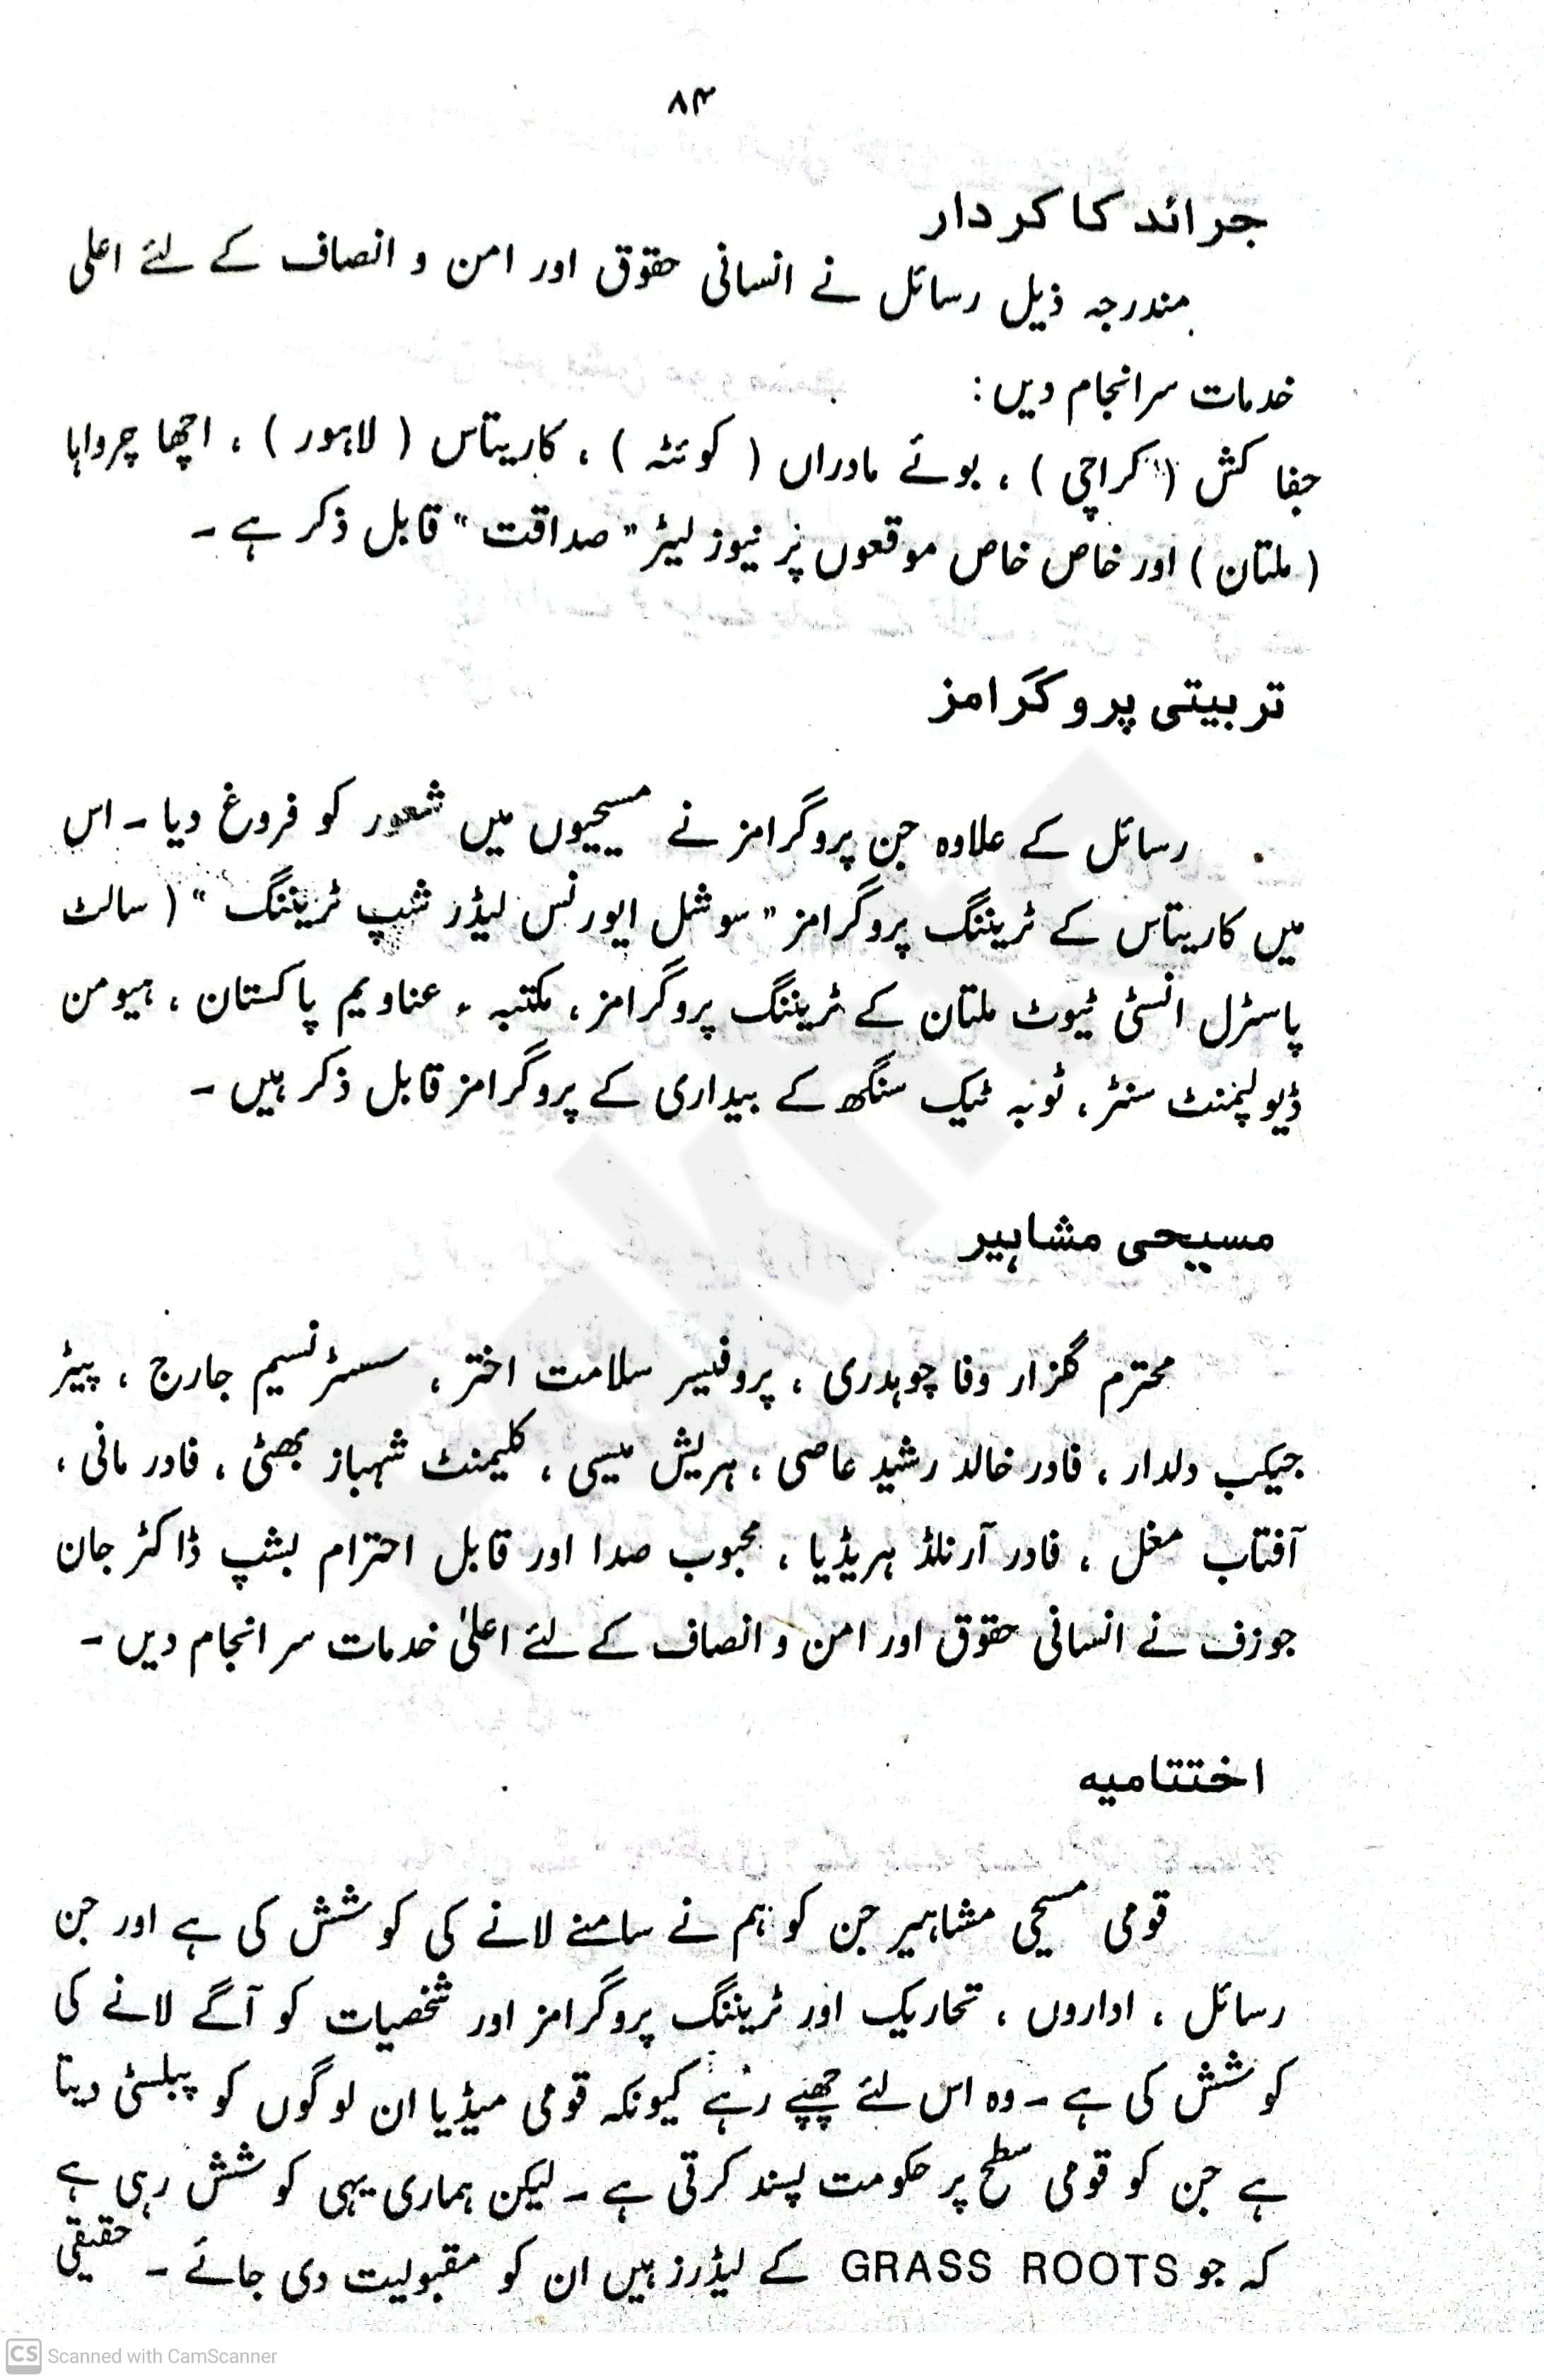 ۸۴
جرائد کا کردار
مندرجہ ذیل رسائل نے انسانی حقوق اور امن و انصاف کے لئے اعلی
خدمات سرانجام دیں :
جفا کش ( کراچی ) ، بوئے مادراں ( کوئٹہ ) ، کاریتاس ( لاہور ) ، اچھا چرواہا
( ملتان ) اور خاص خاص موقعوں پر نیوز لیٹر " صداقت " قابل ذکر ہے ۔
تربیتی پروگرامز
رسائل کے علاوہ جن پروگرامز نے مسیحیوں میں شعور کو فروغ دیا ۔ اس
میں کاریتاس کے ٹریننگ پروگرامز " سوشل ایورنس لیڈر شپ ٹریننگ " ( سالٹ
پاسٹرل انسٹی ٹیوٹ ملتان کے ٹریننگ پروگرامز ، مکتبہ ء عناویم پاکستان ، ہیومن
ڈیولپمنٹ سنٹر ، ٹوبہ ٹیک سنگھ کے بیداری کے پروگرامز قابل ذکر ہیں ۔
مسیحی مشاہیر
محترم گلزار وفا چوہدری ، پروفیسر سلامت اختر ، سسٹر نسیم جارج ، پیٹر
جیکب دلدار ، فادر خالد رشید عاصی ، ہریش میسی ، کلیمنٹ شہباز بھٹی ، فادر مانی ،
آفتاب مغل ، فادر آرنلڈ ہریڈیا ، محبوب صدا اور قابل احترام بشپ ڈاکٹر جان
جوزف نے انسانی حقوق اور امن و انصاف کے لئے اعلیٰ خدمات سر انجام دیں ۔
اختتامیہ
قومی مسیحی مشاہیر جن کو ہم نے سامنے لانے کی کوشش کی ہے اور جن
رسائل ، اداروں ، تحاریک اور ٹریننگ پروگرامز اور شخصیات کو آگے لانے کی
کوشش کی ہے ۔ وہ اس لئے چھپے رہے کیونکہ قومی میڈیا ان لوگوں کو پبلسٹی دیتا
ہے جن کو قومی سطح پر حکومت پسند کرتی ہے ۔ لیکن ہماری یہی کوشش رہی ہے
کہ جو GRASS ROOTS کے لیڈرز ہیں ان کو مقبولیت دی جائے ۔ حقیقی
CS Scanned with CamScanner